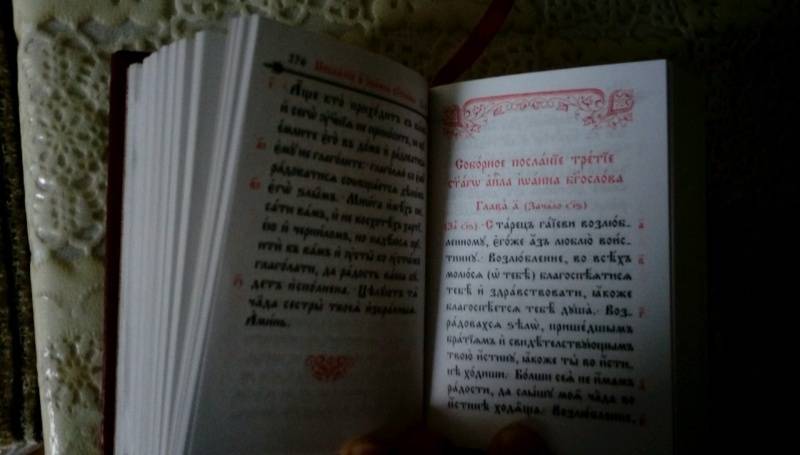 276
Аще кто приходитъ къ вамъ
и сегѡ ᲂу҆ченїѧ не приноситъ, не прї-
емлите єгѡ въ домъ и радоватисѧ
ємꙋ не глаголите. глаголѧй бо ємꙋ
радоватисѧ сообщаетсѧ дѣлѡмъ
єгѡ ѕлымъ. Мнѡга имѣхъ пи-
сати вамъ, и не восхотѣхъ хартїею
и чернилом, но надѣюсѧ прї-
ити къ вамъ и ᲂу҆сты ко ᲂу҆стѡмъ
глаголати, да радость ваша бꙋ-
детъ исполнена. Цѣлꙋютъ тѧ
чада сестры твоеѧ избранныѧ.
Аминь.
Соборное посланїе третїе
ст҃а́гѡ а҆п҃ла і҆ѡанна бг҃ослова
Глава а҃ (Зачало
Старецъ гаїеви возлюб-
ленномꙋ, єгоже азъ люблю вои-
стинꙋ. Возлюбленне, во всѣхъ
молюсѧ (ѡ тебѣ) благоспѣѧтисѧ
тебѣ и здравствовати, ꙗкоже
благоспѣетсѧ тебѣ дꙋша. Воз-
радовахсѧ ѕѣлѡ, пришедшымъ
братїѧмъ и свидѣтельствꙋющымъ
твою истинꙋ, ꙗкоже ты во исти-
нѣ ходиши. Болши сеѧ не имамъ
радости, да слышꙋ моѧ чада во
истинѣ ходѧща. Возлюбленне,